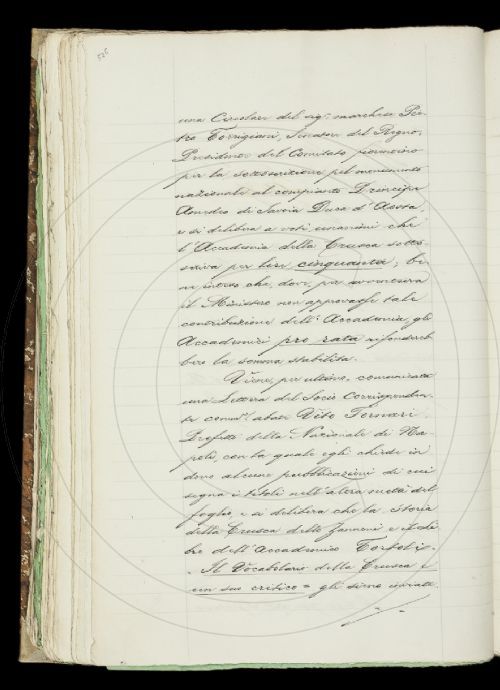 526
una Circolare del sig. marchese Pie-
tro Torrigiani, Senatore del Regno,
Presidente del Comitato fiorentino
per la sottoscrizione pel monumento
nazionale al compianto Principe
Amedeo di Savoia Duca d'Aosta,
e si delibera a voti unanimi che
l'Accademia della Crusca sotto-
scriva per lire cinquanta; be-
ne inteso che, dove per avventura
il Ministero non approvasse tale
contribuzione dell'Accademia, gli
Accademici pro rata rifondereb-
bero la somma stabilita.
Viene, per ultimo, comunicata
una Lettera del Socio corrispondente
te comm. abate Vito Fornari
Prefetto della Nazionale di Na-
poli, con la quale egli chiede in
dono alcune pubblicazioni di cui
segna i titoli nell'altra metà del
foglio, e si delibera che la Storia
della Crusca dello Zannoni e
dell'Accademico Tortoli:
Il Vocabolario della Crusca e
un suo critico = gli siano inviate.